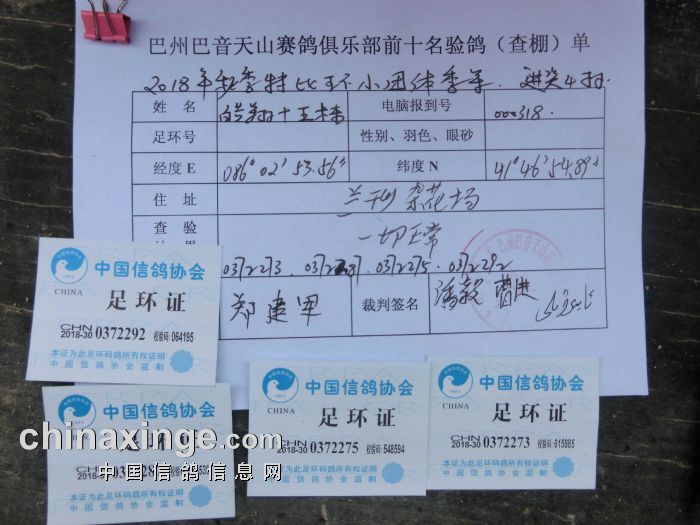 巴州巴音天山赛鸽俱乐部前十名验鸽（查棚）单
2018年秋季特比环小团体季军.进奖4羽.
姓 名 皓翔十五栋 电脑报到号 000318.
足环号 性别、羽色、眼砂
经度E 086°02′53.56″ 纬度N 41°46′54.89″
住 址
查 验 一切正常
0372273. 0372275. 0372292
郑建军 裁判签名
中国信鸽协会
CHINA
足环证
CHN
2018-30 0372292 校验码: 064195
本证为此足环码鸽所有权证明
中国信鸽协会监制
中国信鸽协会
CHINA
足环证
2018-30
本证为此足环码鸽所有权证明
中国信鸽协会监制
中国信鸽协会
CHINA
足环证
CHN
2018-30 0372275 校验码: 548594
本证为此足环码鸽所有权证明
中国信鸽协会监制
中国信鸽协会
CHINA
足环证
CHN
2018-30 0372273 校验码: 615885
本证为此足环码鸽所有权证明
中国信鸽协会监制
chinaxinge.com
中国信鸽信息网